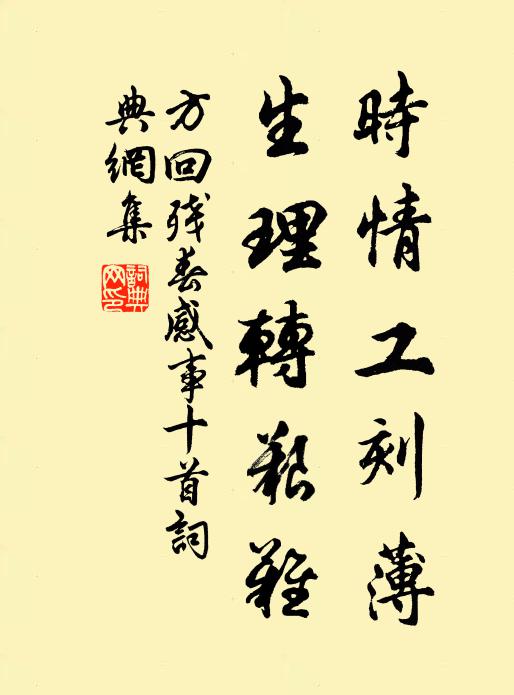 時情工刻薄
生理轉艱難
方回残春感事十首詞
典網集
詞典
网印